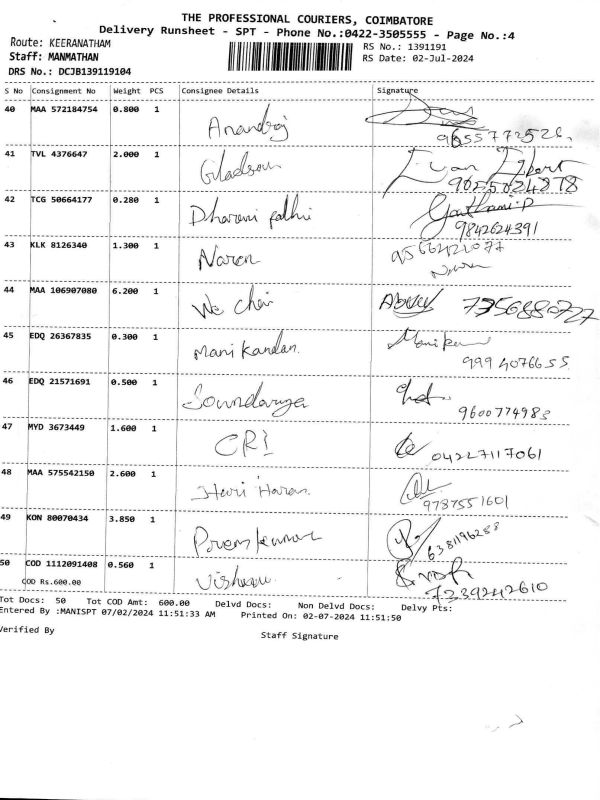 THE PROFESSIONAL COURIERS, COIMBATORE
Delivery Runsheet - SPT - Phone No.:0422-3505555 - Page No.:4
Route: KEERANATHAM
RS No.: 1391191
Staff: MANMATHAN
RS Date: 02-Jul-2024
DRS No.: DCJB139119104
S No Consignment No Weight PCS Consignee Details Signature
40 MAA 572184754 0.800 1 Anandraj
9655772526
41 TVL 4376647 2.000 1 Gladson
9025024878
42 TCG 50664177 0.280 1 Dharani Gowthami.P
9842624391
43 KLK 8126340 1.300 1 Naren
Naren
44 MAA 106907080 6.200 1 We Chai 7356880727
45 EDQ 26367835 0.300 1 Manikandan
9994076655
46 EDQ 21571691 0.500 1 Soundarya
9600774983
47 MYD 3673449 1.600 1 CRI 04227117061
48 MAA 575542150 2.600 1 Hari Haran
9787551601
49 KON 80070434 3.850 1 Premkumar
6381196288
50 COD 1112091408 0.560 1
COD Rs.600.00 7339242610
Tot Docs: 50 Tot COD Amt: 600.00 Delvd Docs: Non Delvd Docs: Delvy Pts:
Entered By :MANISPT 07/02/2024 11:51:33 AM Printed On: 02-07-2024 11:51:50
Verified By
Staff Signature